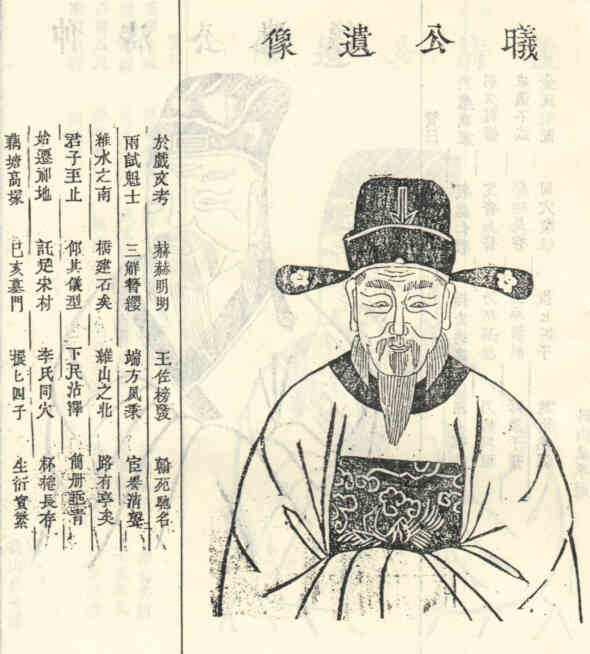 曦公遺像
於戲文考 赫赫明明 王佐榜發 翰苑馳名
兩試魁士 三解簪纓 端方風秉 宦譽清
雒水之南 橋建石矣 雒山之北 路有亭矣
君子至止 仰其儀型 下民沾澤 簡册垂青
始遷祁地 託足宋村 李氏同穴 杯棬長存
藕塘高塚 巳亥墓門 四子 生衍實繁